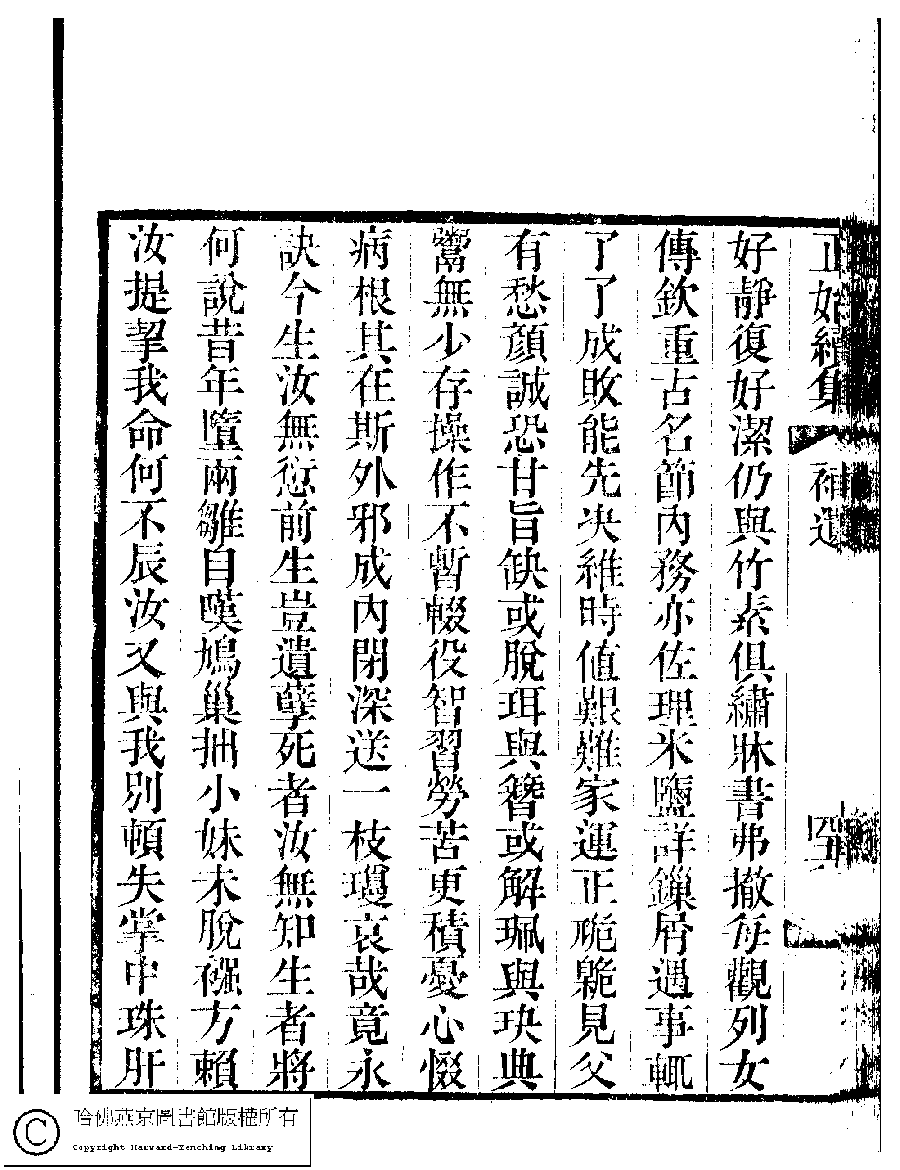 正始續集
補遺
好靜復好潔仍與竹素俱繡牀書弗撤每觀列女
傳欽重古名節內務亦佐理米鹽詳鏁屑遇事輒
了了成敗能先決維時値艱難家運正臲𡰈見父
有愁顏誠恐甘旨缺或脫珥與簪或解珮與玦典
鬻無少存操作不暫輟役智習勞苦更積憂心惙
病根其在斯外邪成內閉深送一枝瓊哀哉竟永
訣今生汝無愆前生豈遺孽死者汝無知生者將
何說昔年墮兩雛自嘆鳩巢拙小妹未脫襁方賴
汝提挈我命何不辰汝又與我別頓失掌中珠肝
哈佛燕京圖書館版權所有
Copyright Harvard-Yenching Library